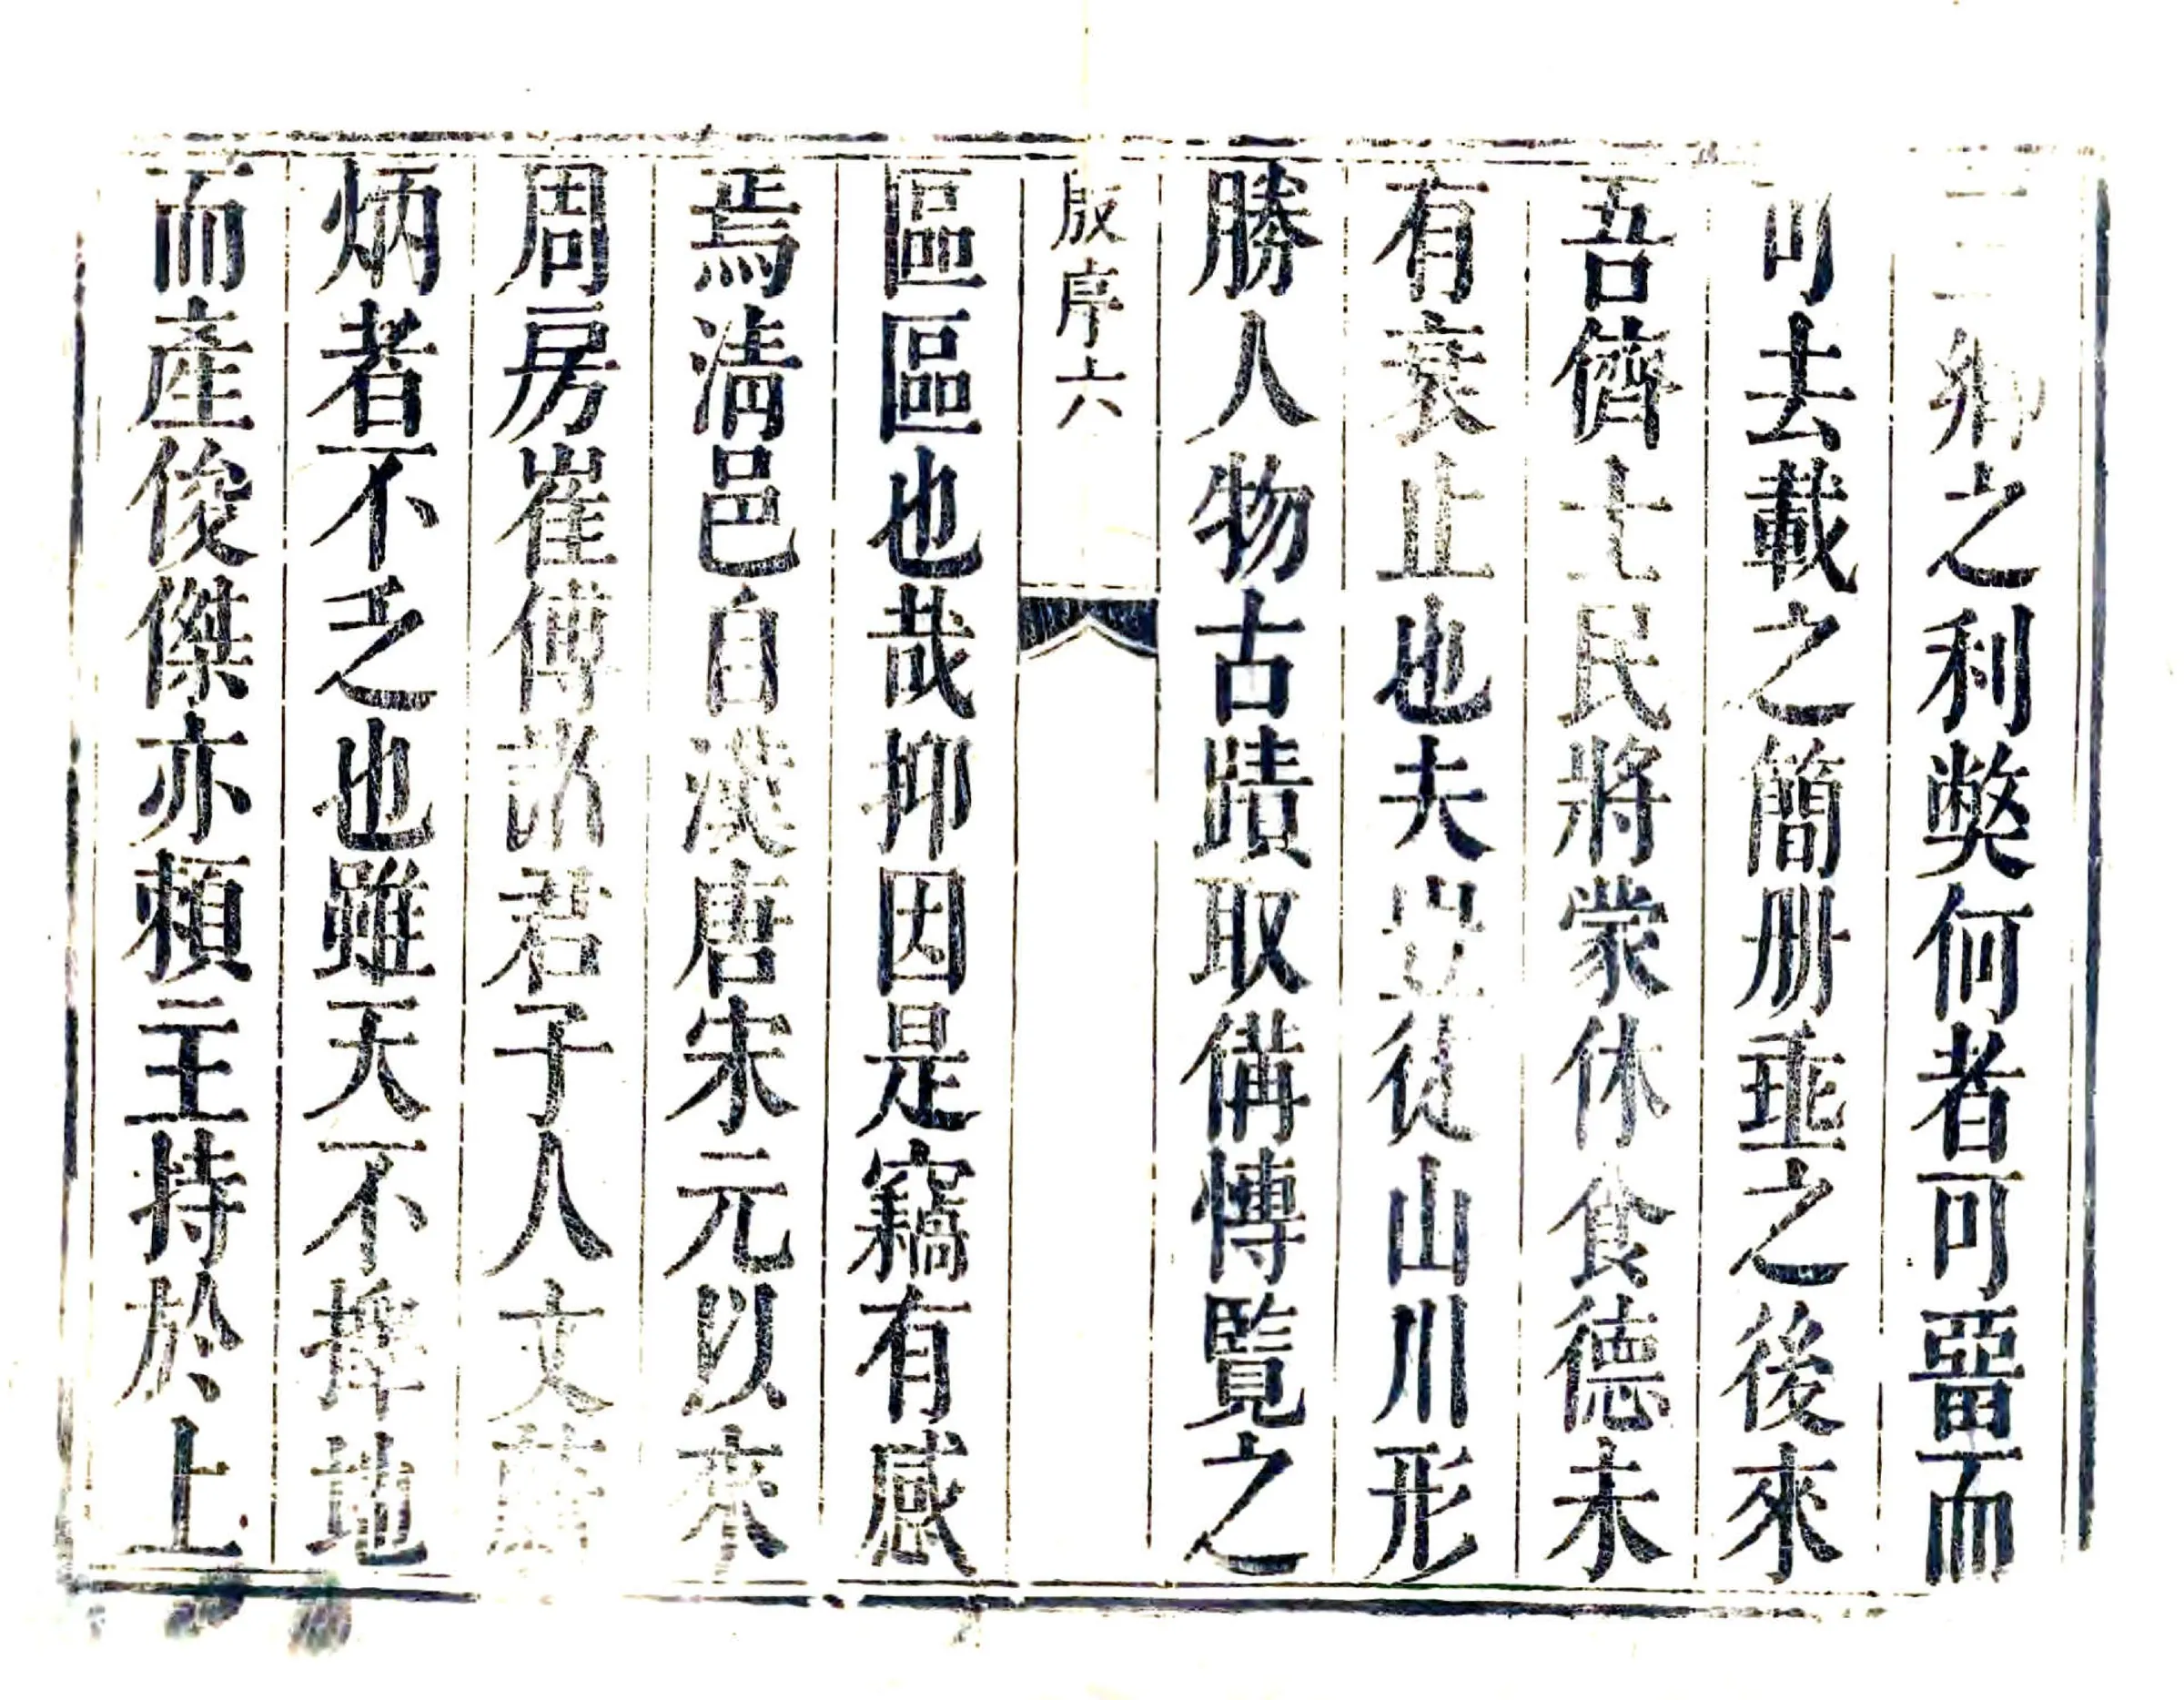 之利獘何者可畱而
可去載之簡册垂之後來
吾儕士民將蒙休食德未
有衰止也夫豈徒山川形
勝人物古蹟取備博覽之
殷序六
區區也哉抑因是竊有感
焉淸邑自漢唐宋元以來
周房崔傅諸君子人文
炳者不乏也雖天不擇地
而產俊傑亦賴主持於上